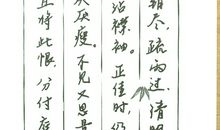 尽，疏雨过，清明
沾襟袖。正佳时，仍
厌瘦。不见又思量
且将此恨，分付庭